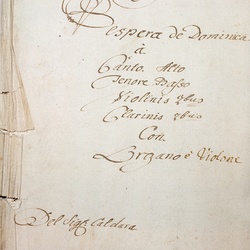 Vespera de Dominica
à
Canto, Alto
Tenore Basso
Violinis 2bus
Clarinis 2bus
Con
Organo è Violone
Del Sigr: Caldara